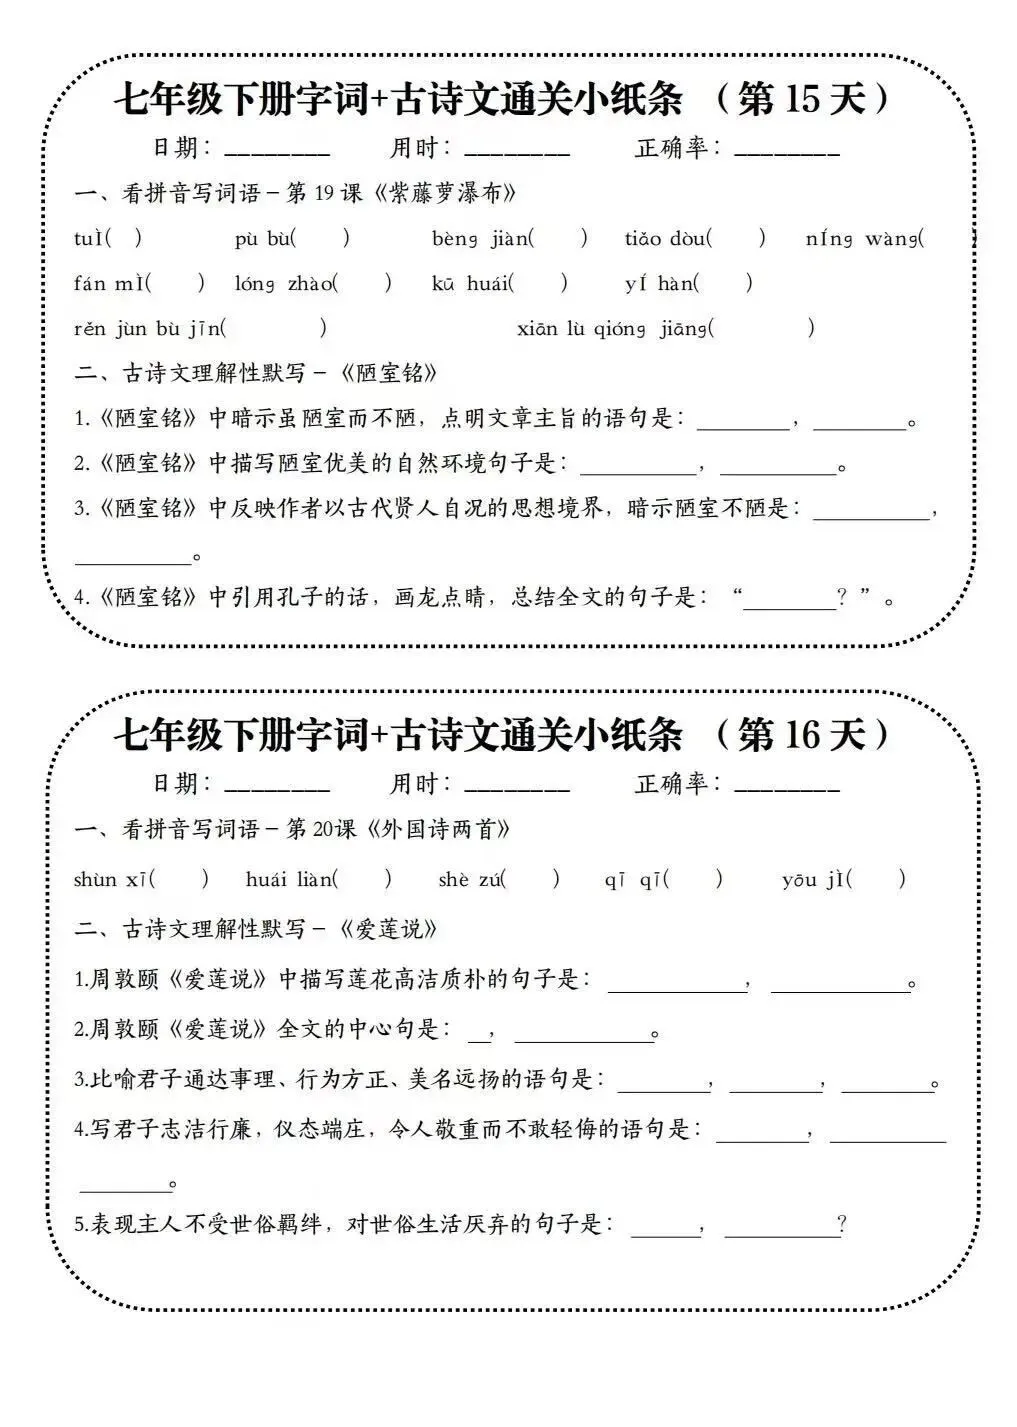 七年级下册字词+古诗文通关小纸条 （第 15 天）
日期：________ 用时：________ 正确率：________
一、看拼音写词语－第 19 课《紫藤萝瀑布》
tuì( ) pù bù( ) bèng jiàn( ) tiǎo dòu( ) níng wàng( )
fán mì( ) lóng zhào( ) kū huái( ) yí hàn( )
rěn jùn bù jīn( ) xiān lù qióng jiāng( )
二、古诗文理解性默写－《陋室铭》
1.《陋室铭》中暗示虽陋室而不陋，点明文章主旨的语句是：________，________。
2.《陋室铭》中描写陋室优美的自然环境句子是：__________，__________。
3.《陋室铭》中反映作者以古代贤人自况的思想境界，暗示陋室不陋是：__________，
__________。
4.《陋室铭》中引用孔子的话，画龙点睛，总结全文的句子是：“________？”。
七年级下册字词+古诗文通关小纸条 （第 16 天）
日期：________ 用时：________ 正确率：________
一、看拼音写词语－第 20课《外国诗两首》
shùn xī( ) huái liàn( ) shè zú( ) qī qī( ) yōu jì( )
二、古诗文理解性默写－《爱莲说》
1.周敦颐《爱莲说》中描写莲花高洁质朴的句子是：____________，____________。
2.周敦颐《爱莲说》全文的中心句是：__，____________。
3.比喻君子通达事理、行为方正、美名远扬的语句是：________，________，________。
4.写君子志洁行廉，仪态端庄，令人敬重而不敢轻侮的语句是：________，__________
________。
5.表现主人不受世俗羁绊，对世俗生活厌弃的句子是：______，__________？